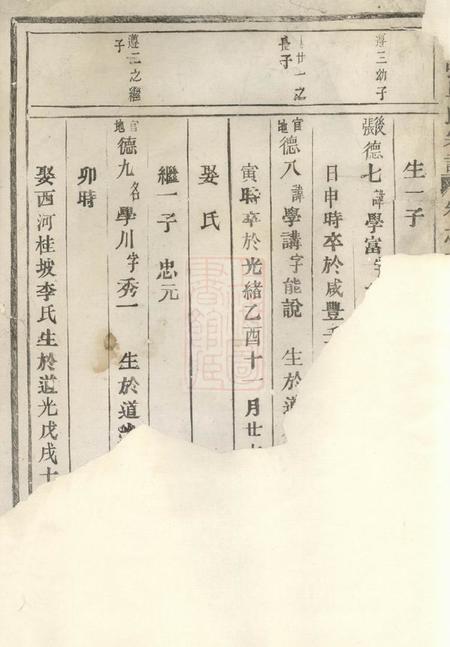 遵三幼子
生一子
張後德七諱學富字
日申時卒於咸豐壬
廿一之長子
官地德八諱學講字能說 生於道
寅時卒於光緒乙酉十 月廿
娶氏
繼一子 忠元
遵二之繼子
官地德九名學川字秀一 生於道
卯時
娶西河桂坡李氏生於道光戊戌十